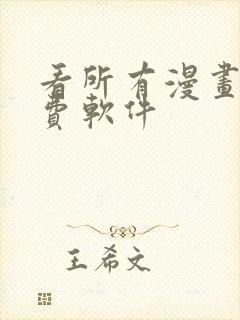 看所有漫畫
費軟件
王希文